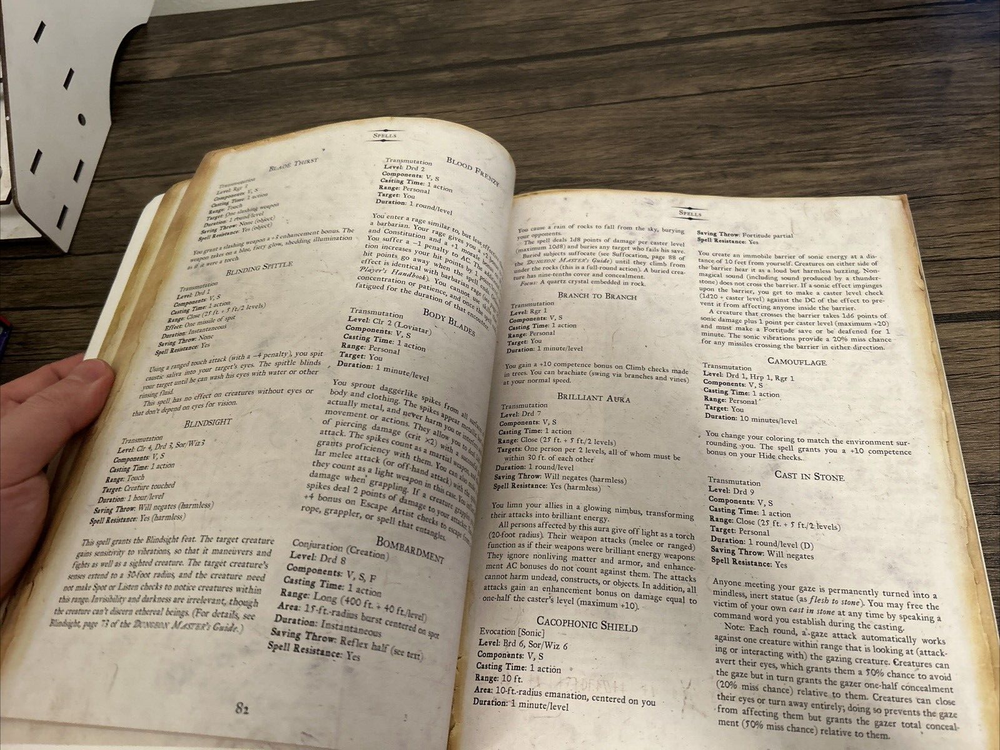 SPELLS
BLADE THIRST
Transmutation
Level: Rgr
Components: V, S
Casting Time: 1 action
Range: Touch
Target: One slashing weapon
Duration: 1 round/level
Saving Throw: None (object)
Spell Resistance: Yes (object)
You grant a slashing weapon a enhancement bonus. The
weapon takes on a blue, fiery glow, shedding illumination
as if it were a torch.
BLINDING SPITTLE
Transmutation
Level: Drd 2
Components: V, S
Casting Time: 1 action
Range: Close (25 ft. + 5 ft./2 levels)
Effect: One missile of spit
Duration: Instantaneous
Saving Throw: None
Spell Resistance: Yes
Using a ranged touch attack (with a –4 penalty), you spit
caustic saliva into your target's eyes. The spittle blinds
your target until he can wash his eyes with water or other
rinsing fluid.
This spell has no effect on creatures without eyes or
that don't depend on eyes for vision.
BLINDSIGHT
Transmutation
Level: Clr 4, Drd 3, Sor/Wiz 3
Components: V, S
Casting Time: 1 action
Range: Touch
Target: Creature touched
Duration: 1 hour/level
Saving Throw: Will negates (harmless)
Spell Resistance: Yes (harmless)
This spell grants the Blindsight feat. The target creature
gains sensitivity to vibrations, so that it maneuvers and
fights as well as a sighted creature. The target creature's
senses extend to a 30-foot radius, and the creature need
not make Spot or Listen checks to notice creatures within
this range. Invisibility and darkness are irrelevant, though
the creature can't discern ethereal beings. (For details, see
Blindsight, page 73 of the DUNGEON MASTER's Guide.)
BLOOD FRENZY
Transmutation
Level: Drd 2
Components: V, S
Casting Time: 1 action
Range: Personal
Target: You
Duration: 1 round/level
You enter a rage similar to, but less
a barbarian. Your rage gives you a
and Constitution and a +1
You suffer a –1 penalty to AC. The
tion increases your hit points by 1
hit points go away when the spell
effect is identical with barbarian
Player's Handbook). You cannot use
concentration or patience, and once the
fatigued for the duration of that encounter.
BODY BLADES
Transmutation
Level: Clr 2 (Loviatar)
Components: V, S
Casting Time: 1 action
Range: Personal
Target: You
Duration: 1 minute/level
You sprout daggerlike spikes from all over
body and clothing. The spikes appear
actually metal, and never harm you or
movement or actions. They allow you to
of piercing damage (crit ×2) with a
attack. The spikes count as a martial weapon
grants proficiency with them. You can also
lar melee attack (or off-hand attack) with the
they count as a light weapon in this case. You
damage when grappling. If a creature grapples
spikes deal 2 points of damage to your attacker
+4 bonus on Escape Artist checks to escape from
rope, grappler, or spell that entangles.
BOMBARDMENT
Conjuration (Creation)
Level: Drd 8
Components: V, S, F
Casting Time: 1 action
Range: Long (400 ft. + 40 ft./level)
Area: 15-ft.-radius burst centered on spot
Duration: Instantaneous
Saving Throw: Reflex half (see text)
Spell Resistance: Yes
82
SPELLS
You cause a rain of rocks to fall from the sky, burying
your opponents.
The spell deals 1d8 points of damage per caster level
(maximum 10d8) and buries any target who fails his save.
Buried subjects suffocate (see Suffocation, page 88 of
the DUNGEON MASTER's Guide) until they climb from
under the rocks (this is a full-round action). A buried crea-
ture has nine-tenths cover and concealment.
Focus: A quartz crystal embedded in rock.
BRANCH TO BRANCH
Transmutation
Level: Rgr 1
Components: V, S
Casting Time: 1 action
Range: Personal
Target: You
Duration: 1 minute/level
You gain a +10 competence bonus on Climb checks made
in trees. You can brachiate (swing via branches and vines)
at your normal speed.
BRILLIANT AURA
Transmutation
Level: Drd 7
Components: V, S
Casting Time: 1 action
Range: Close (25 ft. + 5 ft./2 levels)
Targets: One person per 2 levels, all of whom must be
within 30 ft. of each other
Duration: 1 round/level
Saving Throw: Will negates (harmless)
Spell Resistance: Yes (harmless)
You limn your allies in a glowing nimbus, transforming
their attacks into brilliant energy.
All persons affected by this aura give off light as a torch
(20-foot radius). Their weapon attacks (melee or ranged)
function as if their weapons were brilliant energy weapons:
They ignore nonliving matter and armor, and enhance-
ment AC bonuses do not count against them. The attacks
cannot harm undead, constructs, or objects. In addition, all
attacks gain an enhancement bonus on damage equal to
one-half the caster's level (maximum +10).
CACOPHONIC SHIELD
Evocation [Sonic]
Level: Brd 6, Sor/Wiz 6
Components: V, S
Casting Time: 1 action
Range: 10 ft.
Area: 10-ft.-radius emanation, centered on you
Duration: 1 minute/level
Saving Throw: Fortitude partial
Spell Resistance: Yes
You create an immobile barrier of sonic energy at a dis-
tance of 10 feet from yourself. Creatures on either side of
the barrier hear it as a loud but harmless buzzing. Non-
magical sound (including sound produced by a thunder-
stone) does not cross the barrier. If a sonic effect impinges
upon the barrier, you get to make a caster level check
(1d20 + caster level) against the DC of the effect to pre-
vent it from affecting anyone inside the barrier.
A creature that crosses the barrier takes 1d6 points of
sonic damage plus 1 point per caster level (maximum +20)
and must make a Fortitude save or be deafened for 1
minute. The sonic vibrations provide a 20% miss chance
for any missiles crossing the barrier in either direction.
CAMOUFLAGE
Transmutation
Level: Drd 1, Hrp 1, Rgr 1
Components: V, S
Casting Time: 1 action
Range: Personal
Target: You
Duration: 10 minutes/level
You change your coloring to match the environment sur-
rounding you. The spell grants you a +10 competence
bonus on your Hide checks.
CAST IN STONE
Transmutation
Level: Drd 9
Components: V, S
Casting Time: 1 action
Range: Close (25 ft. + 5 ft./2 levels)
Target: Personal
Duration: 1 round/level (D)
Saving Throw: Will negates
Spell Resistance: Yes
Anyone meeting your gaze is permanently turned into a
mindless, inert statue (as flesh to stone). You may free the
victim of your own cast in stone at any time by speaking a
command word you establish during the casting.
Note: Each round, a gaze attack automatically works
against one creature within range that is looking at (attack-
ing or interacting with) the gazing creature. Creatures can
avert their eyes, which grants them a 50% chance to avoid
the gaze but in turn grants the gazer one-half concealment
(20% miss chance) relative to them. Creatures can close
their eyes or turn away entirely; doing so prevents the gaze
from affecting them but grants the gazer total conceal-
ment (50% miss chance) relative to them.